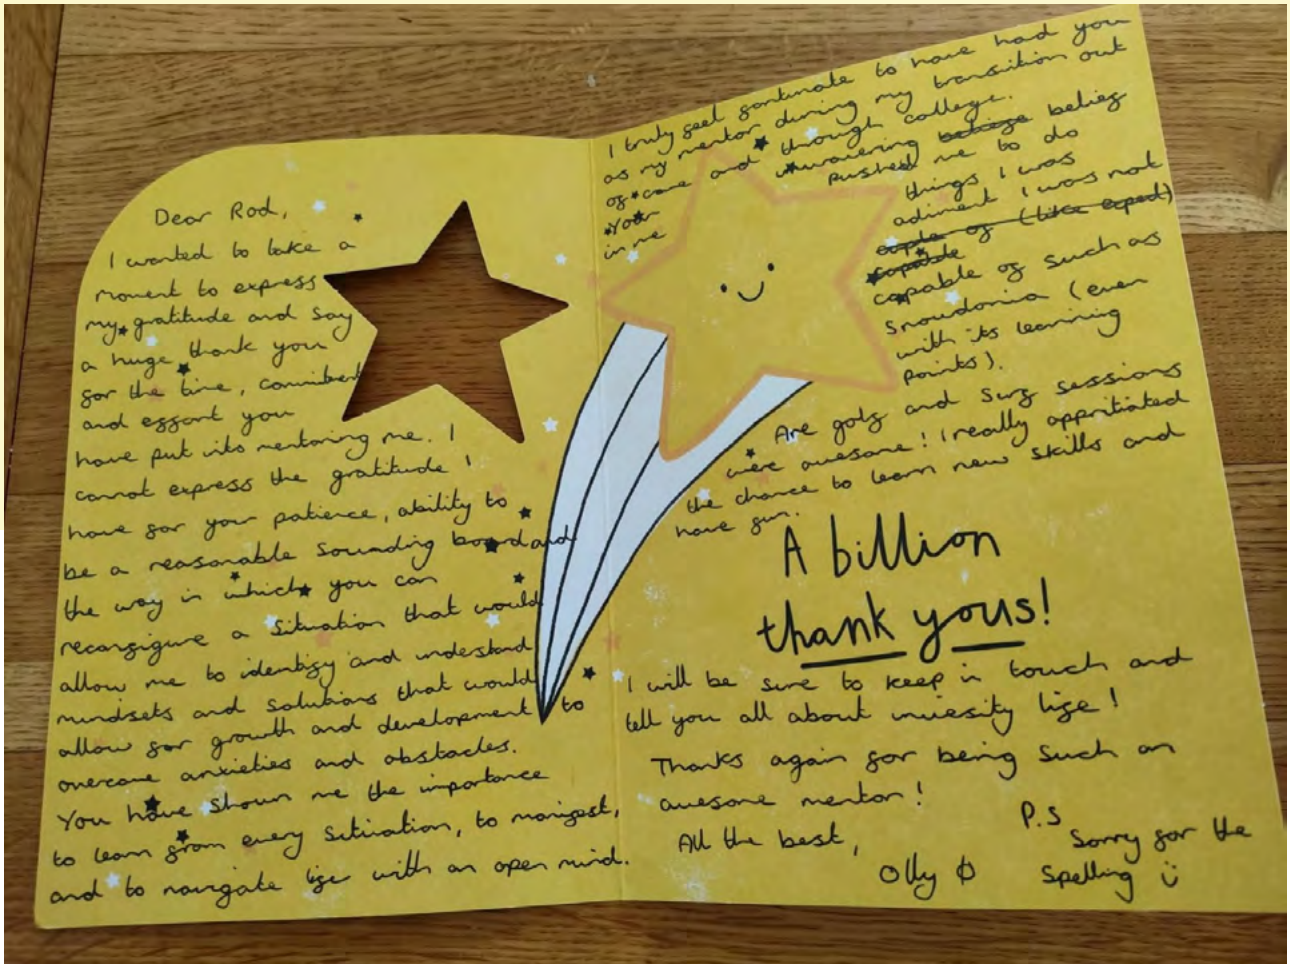 Dear Rod,
I wanted to take a
moment to express
my gratitude and say
a huge thank you
for the time, commitment
and effort you
have put into mentoring me. I
cannot express the gratitude I
have for your patience, ability to
be a reasonable sounding board and
the way in which you can
reconfigure a situation that would
allow me to identify and understand
mindsets and solutions that would
allow for growth and development to
overcome anxieties and obstacles.
You have shown me the importance
to learn from every situation, to manifest,
and to navigate life with an open mind.
I truly feel fortunate to have had you
as my mentor during my transition out
of care and through college.
Your unwavering belief
in me pushed me to do
things I was
adiment I was not
of (like expect)
capable
capable of such as
Snowdonia (even
with its learning
points).
Are golf and Surf sessions
were awesome! I really appritiated
the chance to learn new skills and
have fun.
A billion
thank yous!
I will be sure to keep in touch and
tell you all about life!
Thanks again for being such an
awesome mentor!
All the best,
Olly
P.S
Sorry for the
Spelling